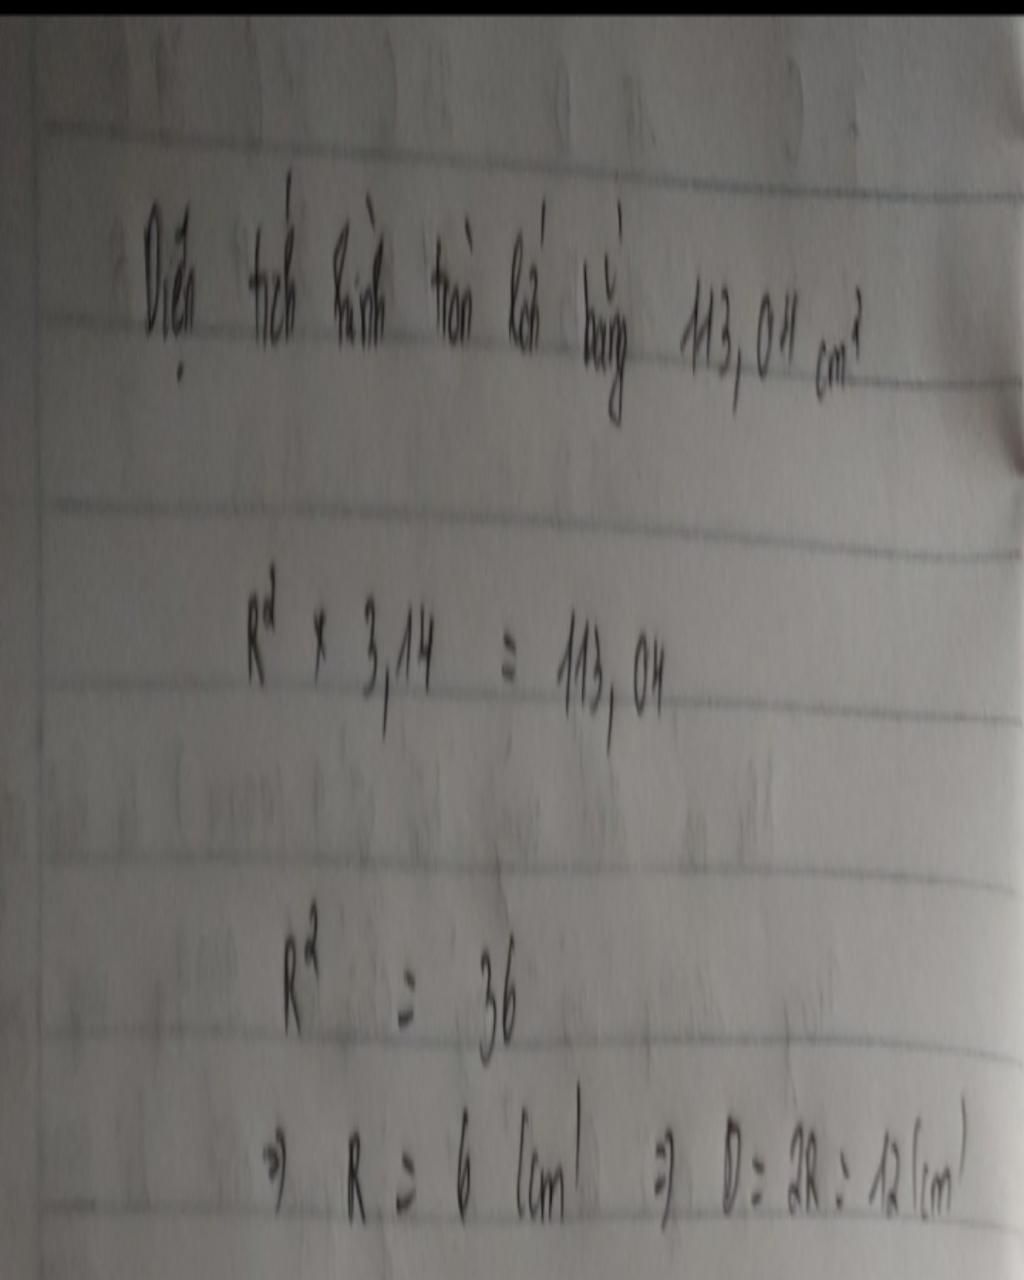 Diện tích hình tròn lớn bằng 113,04 cm²
R² x 3,14 = 113,04
R² = 36
⇒ R = 6 (cm) ⇒ D = 2R = 12 (cm)